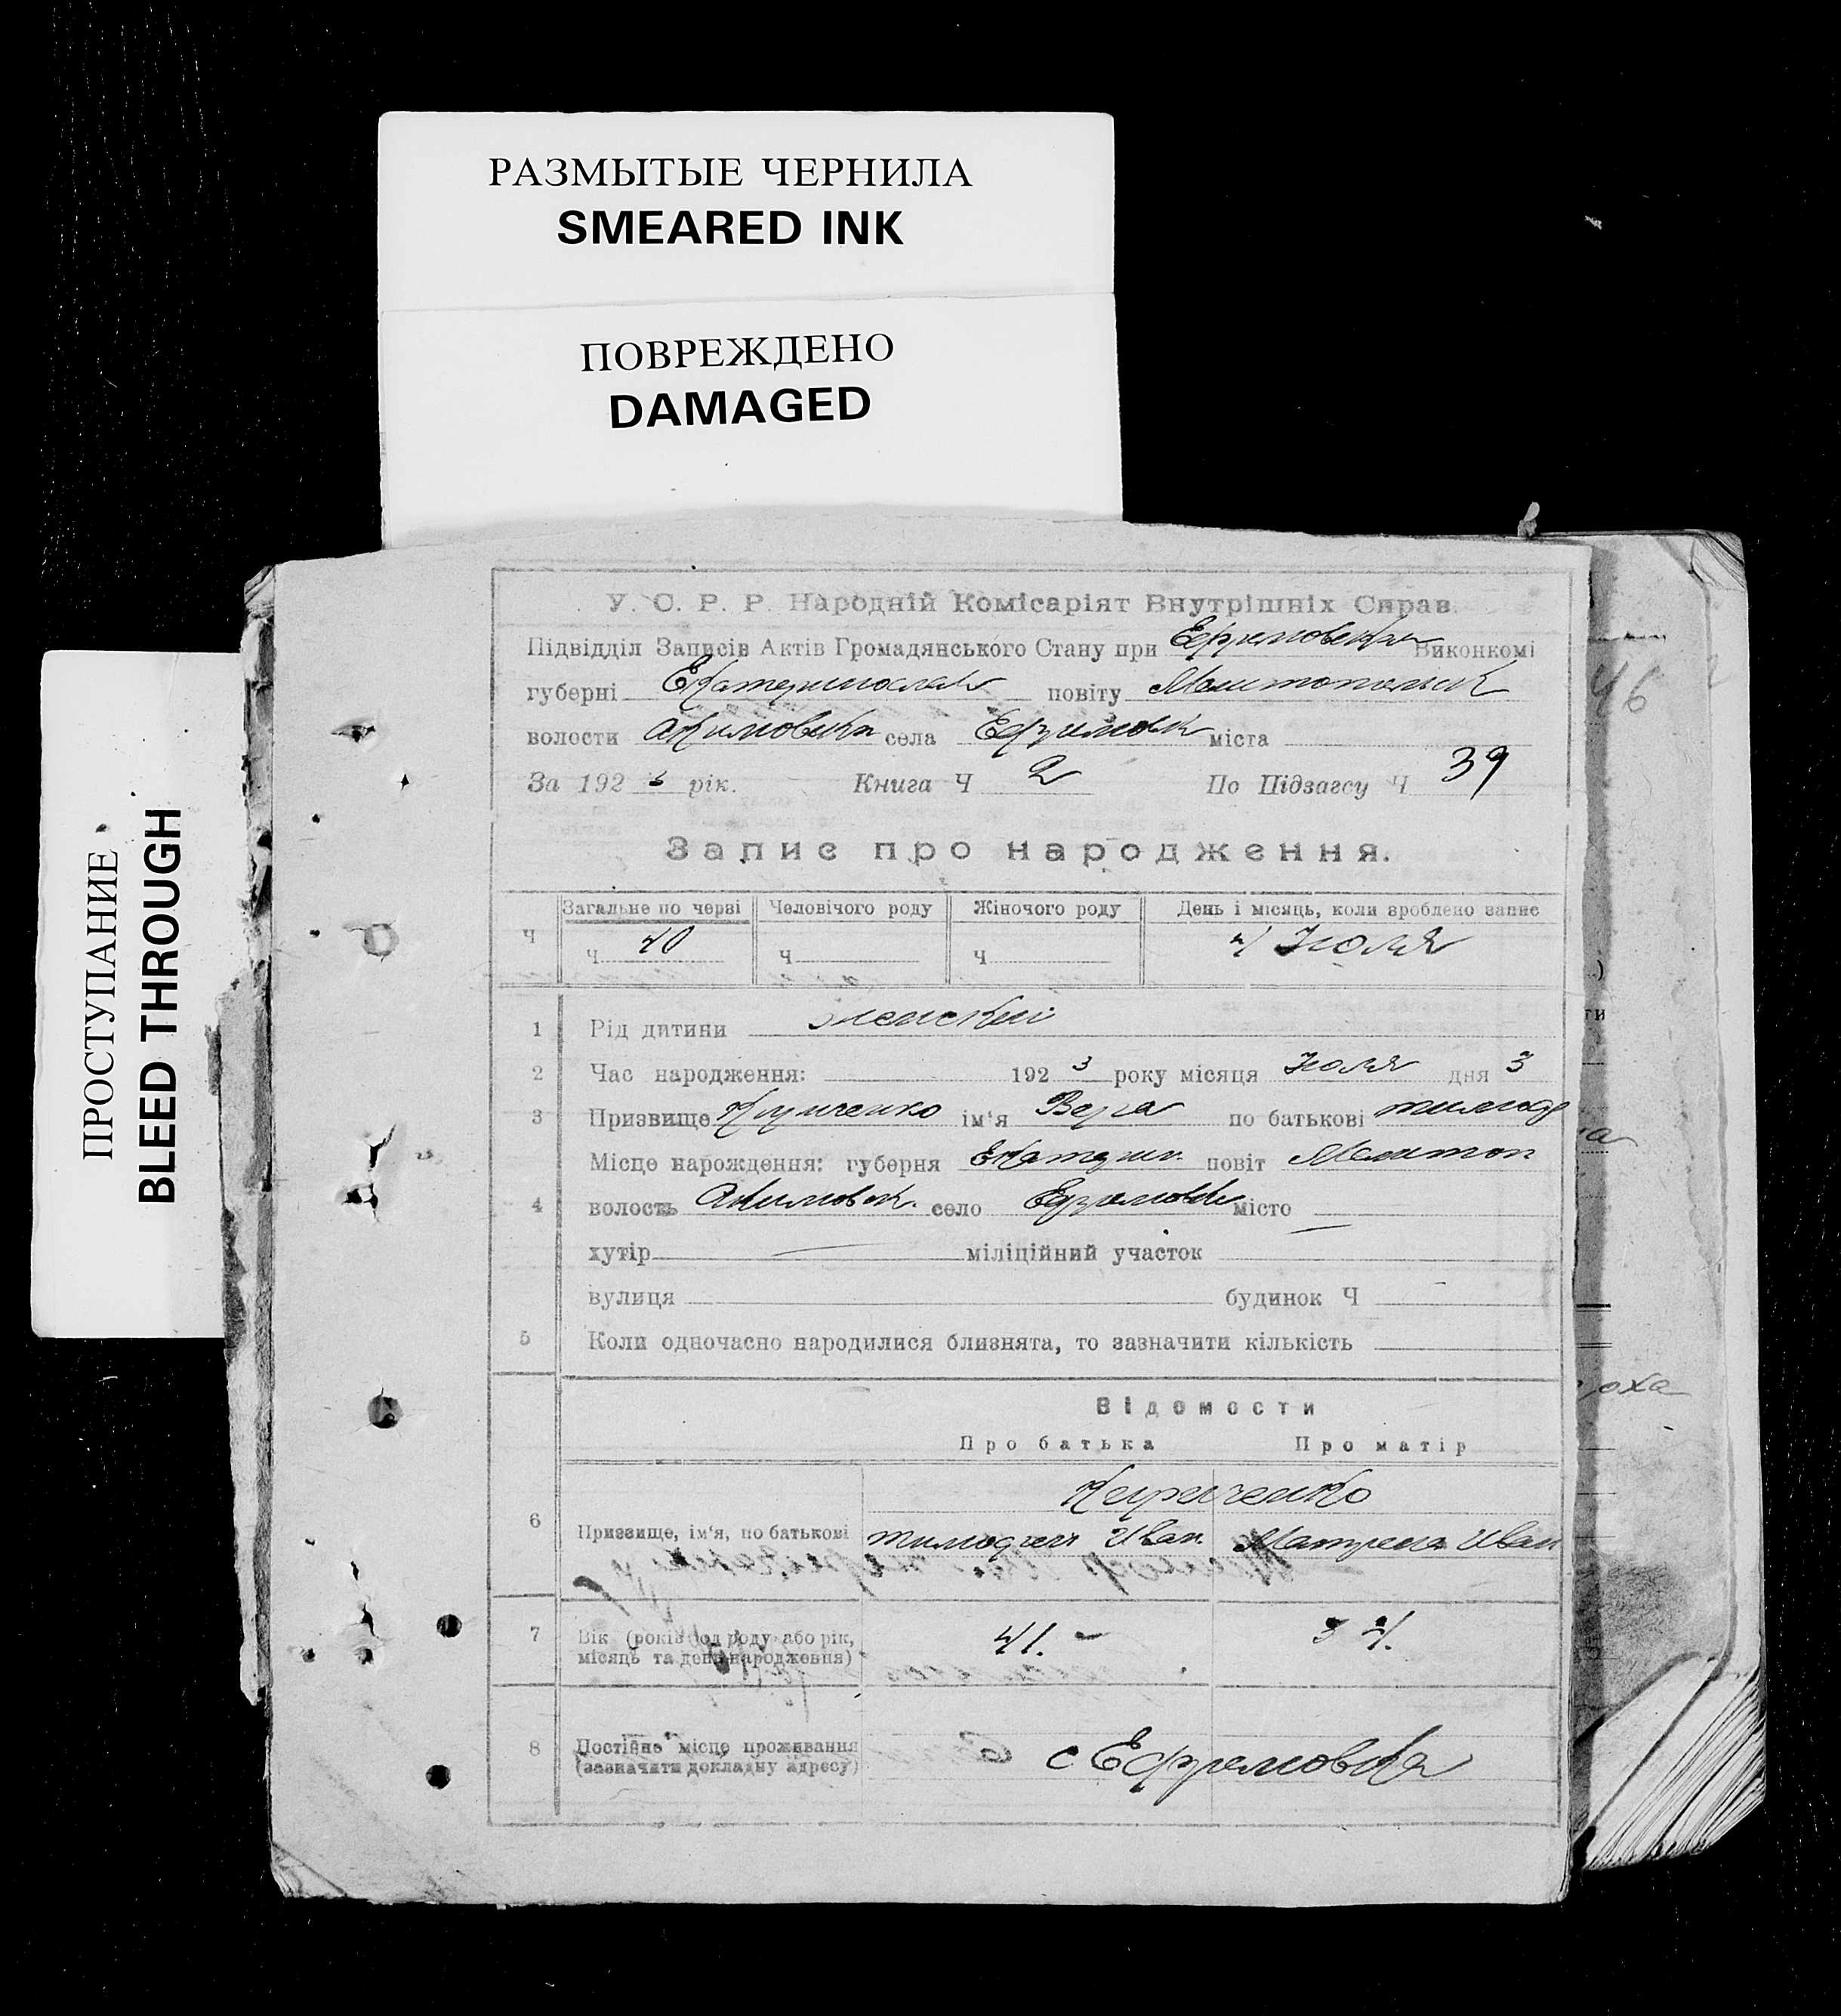 РАЗМЫТЫЕ ЧЕРНИЛА
SMEARED INK
ПОВРЕЖДЕНО
DAMAGED
ПРОСТУПАНИЕ
BLEED THROUGH
У. С. Р. Р. Народній Комісаріят Внутрішніх Справ.
Підвідділ Записів Актів Громадянського Стану при Ефремовском Виконкомі
губерні Екатеринослав повіту Мелитопольск
волости Акимовска села Ефремовк міста
За 1923 рік. Книга Ч 2 По Підзагсу Ч 39
46
Запис про народження.
Загальне по черві Человічого роду Жіночого роду День і місяць, коли зроблено запис
Ч Ч 40 Ч Ч 4 Июля
1 Рід дитини женский
2 Час народження: 1923 року місяця Июля дня 3
3 Призвище Кириченко ім'я Вера по батькові тимоф
Місце народження: губерня Екатерин. повіт Мелитоп
4 волость Акимовск. село Ефремовк місто
хутір міліційний участок
вулиця будинок Ч
5 Коли одночасно народилися близнята, то зазначити кількість
Відомости
Про батька Про матір
Кириченко
6 Призвище, ім'я, по батькові тимофей Иван. Матрена Иван
7 Вік (років од роду або рік, 41. 34.
місяць та день народження)
8 Постійне місце проживання с Ефремовка
(зазначити докладну адресу)